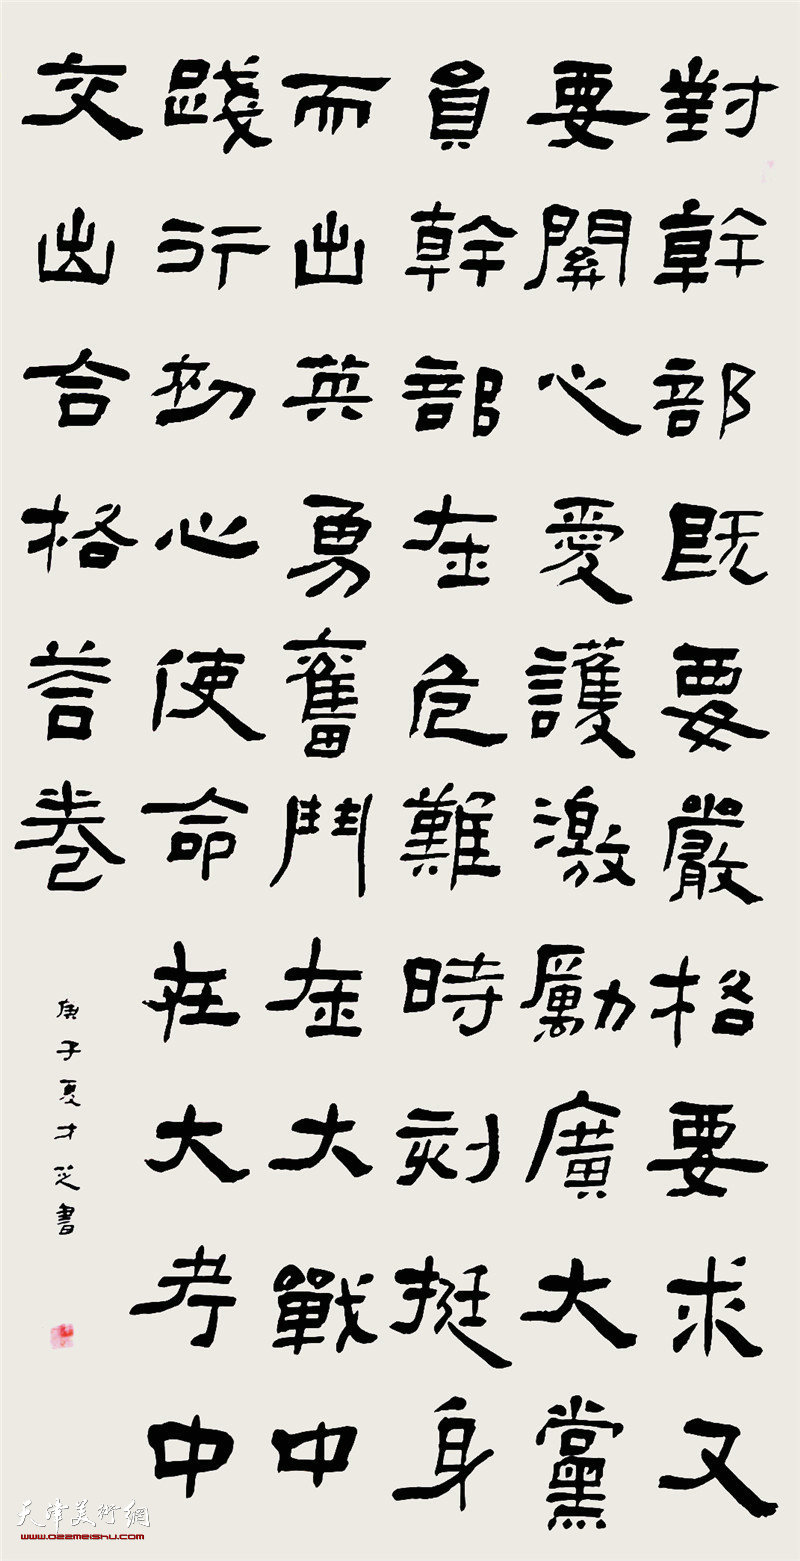 對幹部既要嚴格要求又
要關心愛護激勵廣大黨
員幹部在危難時刻挺身
而出英勇奮鬥在大戰中
踐行初心使命在大考中
交出合格荅卷
庚子夏才芝書
天津美術網
www.022meishu.com